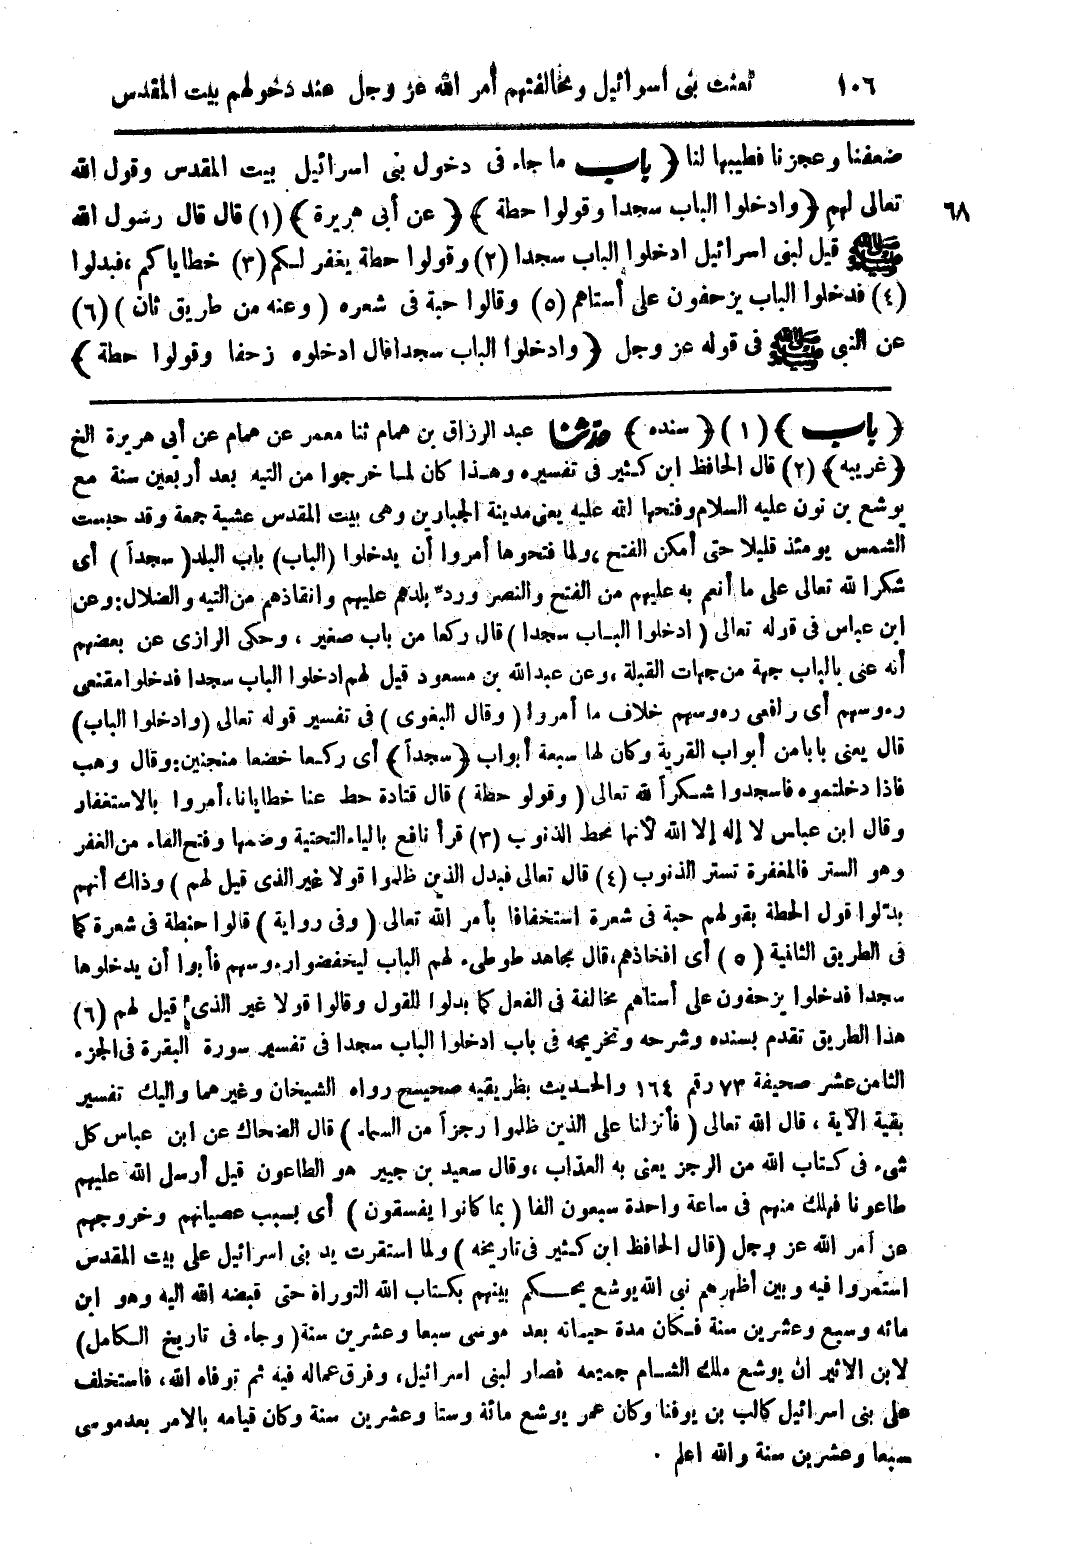 ١٠٦ تعنت بنى اسرائيل ومخالفتهم أمر الله عز وجل عند دخولهم بيت المقدس
ضعفنا وعجزنا فطيبها لنا ﴿ باب ما جاء فى دخول بنى اسرائيل بيت المقدس وقول الله
تعالى لهم ﴿ وادخلوا الباب سجدا وقولوا حطة ﴾ ﴿ عن أبى هريرة ﴾ (١) قال قال رسول الله
٦٨
ﷺ قيل لبنى اسرائيل ادخلوا الباب سجدا (٢) وقولوا حطة يغفر لكم (٣) خطاياكم ، فبدلوا
(٤) فدخلوا الباب يزحفون على أستاهم (٥) وقالوا حبة فى شعره ( وعنه من طريق ثان ) (٦)
عن النبى ﷺ فى قوله عز وجل ﴿ وادخلوا الباب سجدا قال ادخلوه زحفا وقولوا حطة ﴾
﴿ باب ﴾ (١) ﴿ سنده ﴾ حدثنا عبد الرزاق بن همام ثنا معمر عن همام عن أبى هريرة الخ
﴿ غريبه ﴾ (٢) قال الحافظ ابن كثير فى تفسيره وهذا كان لما خرجوا من التيه بعد أربعين سنة مع
يوشع بن نون عليه السلام وفتحها الله عليه يعنى مدينة الجبارين وهى بيت المقدس عشية جمعة وقد حبست
الشمس يومئذ قليلا حتى أمكن الفتح ، ولما فتحوها أمروا أن يدخلوا (الباب) باب البلد ( سجداً ) أى
شكرا لله تعالى على ما أنعم به عليهم من الفتح والنصر وردّ بلدهم عليهم وانقاذهم من التيه والضلال : وعن
ابن عباس فى قوله تعالى ( ادخلوا الباب سجدا ) قال ركعا من باب صغير ، وحكى الرازى عن بعضهم
أنه عنى بالباب جهة من جهات القبلة ، وعن عبدالله بن مسعود قيل لهم ادخلوا الباب سجدا فدخلوا مقنعى
رءوسهم أى رافعى رءوسهم خلاف ما أمروا ( وقال البغوى ) فى تفسير قوله تعالى (وادخلوا الباب)
قال يعنى بابا من أبواب القرية وكان لها سبعة أبواب ﴿ سجداً ﴾ أى ركعا خضعا منحنين : وقال وهب
فاذا دخلتموه فاسجدوا شكراً لله تعالى ( وقولو حطة ) قال قتادة حط عنا خطايانا ، أمروا بالاستغفار
وقال ابن عباس لا إله إلا الله لأنها تحط الذنوب (٣) قرأ نافع بالياء التحتية وضمها وفتح الفاء من الغفر
وهو الستر فالمغفرة تستر الذنوب (٤) قال تعالى فبدل الذين ظلموا قولا غير الذى قيل لهم ) وذاك أنهم
بدّلوا قول الحطة بقولهم حبة فى شعرة استخفافا بأمر الله تعالى ( وفى رواية ) قالوا حنطة فى شعرة كما
فى الطريق الثانية (٥) أى افخاذهم ، قال مجاهد طوطىء لهم الباب ليخفضوا رءوسهم فأبوا أن يدخلوها
سجدا فدخلوا يزحفون على أستاهم مخالفة فى الفعل كما بدلوا للقول وقالوا قولا غير الذى قيل لهم (٦)
هذا الطريق تقدم بسنده وشرحه وتخريجه فى باب ادخلوا الباب سجدا فى تفسير سورة البقرة فى الجزء
الثامن عشر صحيفة ٧٣ رقم ١٦٤ والحديث بطريقيه صحيح رواه الشيخان وغيرهما واليك تفسير
بقية الآية ، قال الله تعالى ( فأنزلنا على الذين ظلموا رجزاً من السماء ) قال الضحاك عن ابن عباس كل
شىء فى كتاب الله من الرجز يعنى به العذاب ، وقال سعيد بن جبير هو الطاعون قيل أرسل الله عليهم
طاعونا فهلك منهم فى ساعة واحدة سبعون الفا ( بما كانوا يفسقون ) أى بسبب عصيانهم وخروجهم
عن أمر الله عز وجل ( قال الحافظ ابن كثير فى تاريخه ) ولما استقرت يد بنى اسرائيل على بيت المقدس
استمروا فيه وبين أظهرهم نبى الله يوشع يحكم بينهم بكتاب الله التوراة حتى قبضه الله اليه وهو ابن
مائه وسبع وعشرين سنة فكان مدة حياته بعد موسى سبعا وعشرين سنة ( وجاء فى تاريخ الكامل )
لابن الاثير ان يوشع ملك الشام جميعه فصار لبنى اسرائيل ، وفرق عماله فيه ثم توفاه الله ، فاستخلف
على بنى اسرائيل كالب بن يوفنا وكان عمر يوشع مائة وستا وعشرين سنة وكان قيامه بالامر بعد موسى
سبعا وعشرين سنة والله اعلم .